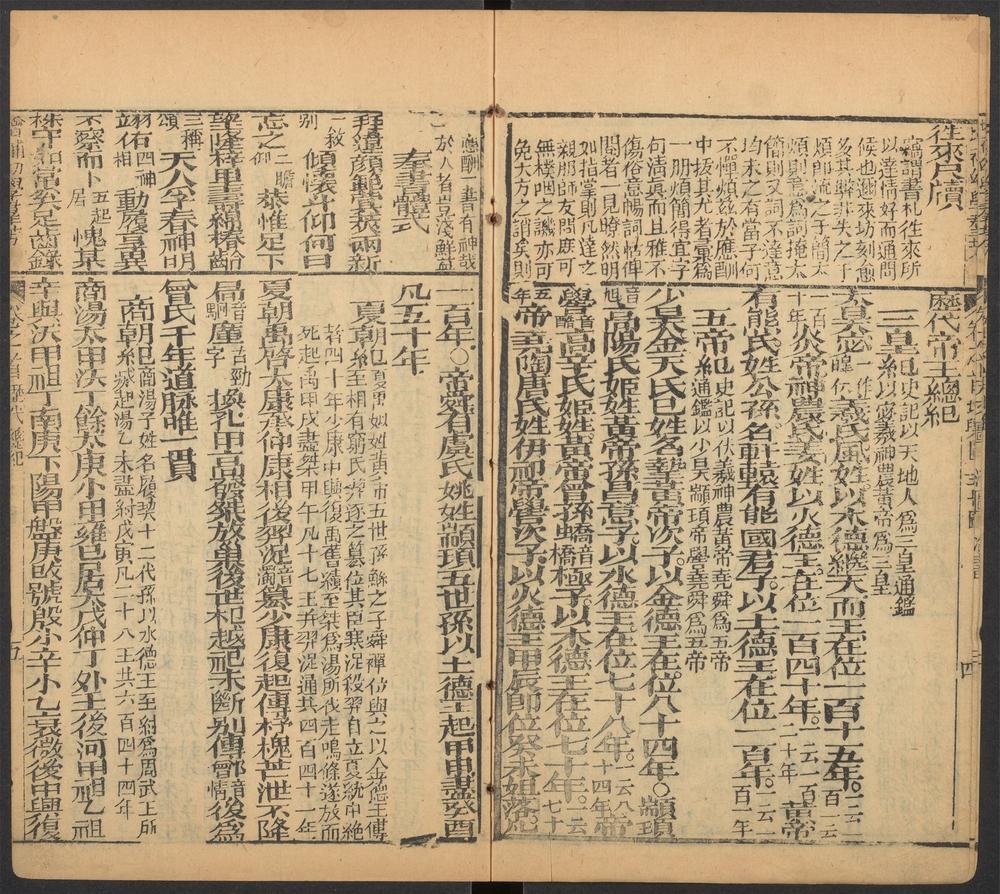 往來尺牘
竊謂書札往來所
以達情好而通問
候也邇來坊刻愈
多其舛非失之于
煩即流之于簡太
煩則意爲詞掩太
簡則又詞不達意
均未之有當予何
不憚煩茲於應酬
中拔其尤者彙爲
一册煩簡得宜字
何淸眞而且雅不
傷俗意暢詞恬俾
閱者一見暸然明
如指掌則凡達之
親朋師友問庶可
無樸咽之譏亦可
免大方之誚矣則
應酬一書有神哉
於人者豈淺鮮哉
奉書體式
拜違顔範裘葛兩新
一敘
别 傾懷斗仰何日
忘之 二瞻仰 恭惟足下
望隆梓里壽綿椿齡
三稱頌 天人孚春神明
羽佑 四神相 動履亨異
不察而卜 五起居 愧某
株守如常癸足齒錄
歷代帝王總紀
三皇紀 史記以天地人爲三皇通鑑
系以宓羲神農黄帝爲三皇
太昊宓 一作伏 羲氏風姓以木德繼天而王在位一百十五年
炎帝神農氏姜姓以火德王在位一百四十年 黄帝
有熊氏姓公孫名軒轅有熊國君子以土德王在位一百年
五帝紀 史記以伏羲神農黄帝堯舜爲五帝
系通鑑以少昊顓頊帝嚳堯舜爲五帝
少昊金天氏巳姓名摯黄帝次子以金德王在位八十四年○顓頊
高陽氏姬姓黄帝孫昌意子以水德王在位七十八年 帝
嚳高辛氏姬姓黄帝曾孫蟜極子以木德王在位七十年
帝堯陶唐氏姓伊祁帝嚳次子以火德王甲辰卽位癸未殂落
一百年○帝舜有虞氏姚姓顓頊五世孫以土德王起甲申盡癸酉
凡五十年
夏朝紀 夏禹姒姓黄帝五世孫鯀之子舜禪位與之以金德王傳
系至相有窮氏羿逐之簒位其臣寒浞殺羿自立夏統中絶
若四十年少康中興復禹舊績至桀爲湯所伐走鳴條遂放而
死起禹甲戌盡桀甲午凡十七王并羿浞通其四百四十一年
夏朝禹啓太康仲康相後羿浞簒少康復起傳杼槐芒泄不降
扃 廑 孔甲高發桀放巢後世杞越祀未斷别傳鄫 後爲
曾氏千年道脉唯一貫
商朝紀 商湯子姓名履契十二代孫以水德王至紂爲周武王所
系滅起湯乙未盡紂戊寅凡二十八王共六百四十四年
商湯太甲沃丁餘太庚小甲雍巳居太戊仲丁外壬後河甲祖乙祖
辛與沃甲祖丁南庚下陽甲盤庚改號殷小辛小乙衰微後中興復